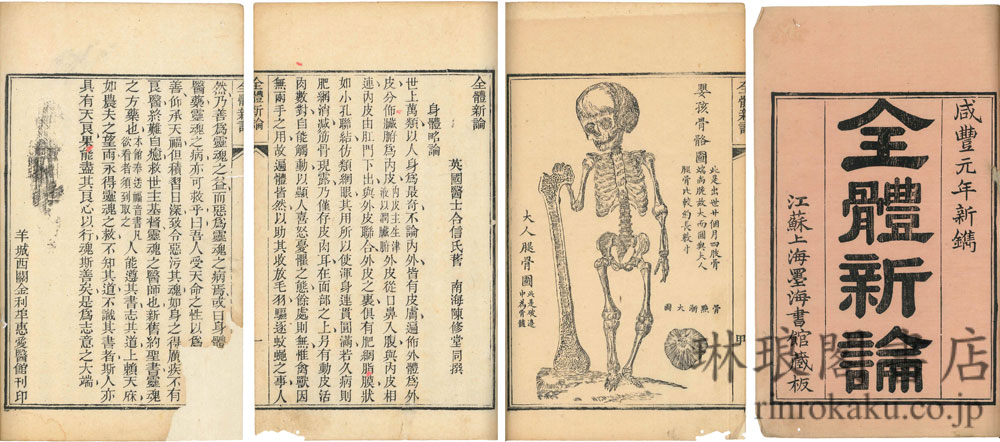 咸豐元年新鐫
全體新論
江蘇上海墨海書館藏板
全體新論
嬰孩骨骼圖
此是出世廿個月四肢骨
端尚脆故大而圓與大人
腿骨比較約長數寸
大人腿骨圖
此是破邊
中為骨髓
漸大圖
全體新論
身體略論
英國醫士合信氏著 南海陳修堂同撰
世上萬類以人身為最奇不論內外皆有皮膚遍佈外體為外
皮分佈臟腑為內皮內皮主生津液以潤臟腑外皮從口鼻入腹與內皮相
連內皮由肛門下出與外皮聯合外皮之裏俱有肥網脂膜狀
如小孔聯結彷類網眼其用所以使渾身連貫圓滿若久病則
肥網消減筋骨現露乃僅存皮肉耳在面部之上另有動皮活
肉數對自能觸動以顯人喜怒憂懼之態餘處則無惟禽獸因
無兩手之用故遍體皆然以助其收放毛羽驅逐蚊蠅之事人
一
全體新論
然乃善為靈魂之益而惡為靈魂之病焉或曰身體
醫藥靈魂之病亦可救乎曰吾人受天命之性以為
善仰承天福但積習日深致令惡污其魂如身之得厲疾不有
良醫終難自癒救世主基督靈魂之醫師也新舊約聖書靈魂
之方藥也本館奉送福音書凡欲看者須到取之人能遵其書志其道上賴天庥
如農夫之望雨永得靈魂之救不知其道不識其書者斯人亦
具有天良果能盡其良心以行魂斯善矣是為志意之大端
羊城西關金利埠惠愛醫館刊印
琳琅閣書店
rinrokaku.co.jp